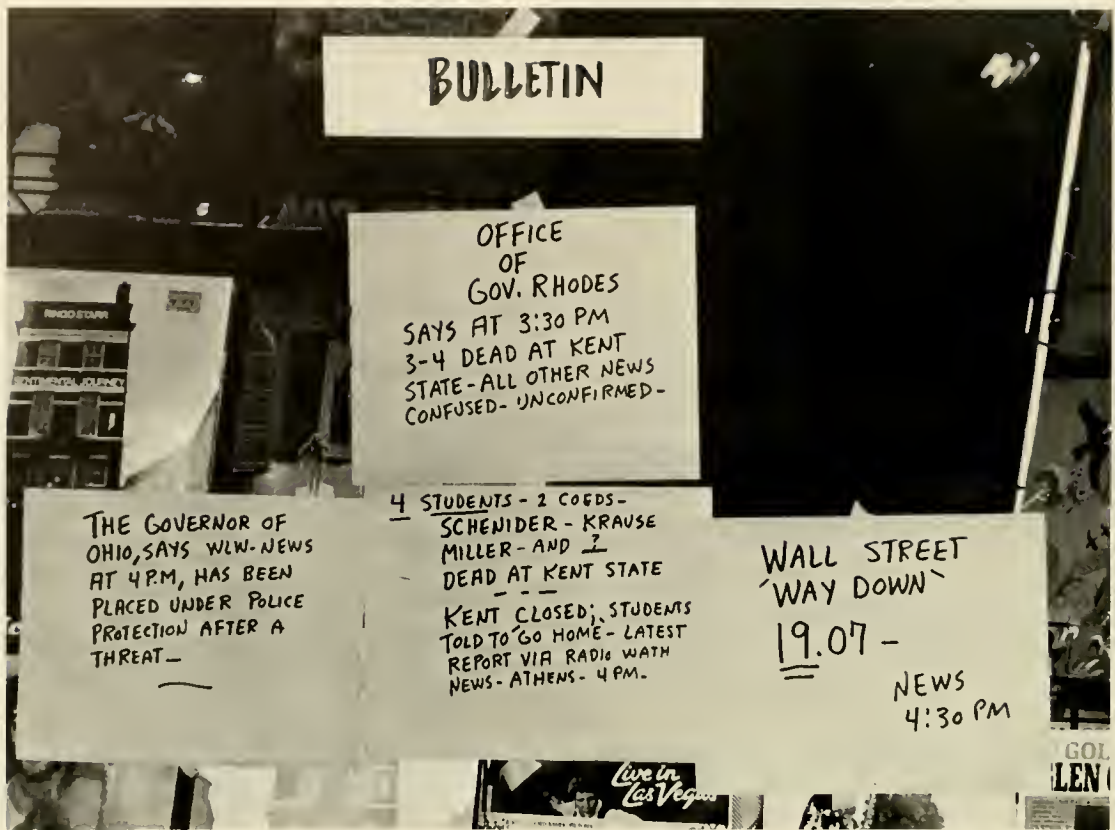 BULLETIN
OFFICE
OF
GOV. RHODES
SAYS AT 3:30 PM
3-4 DEAD AT KENT
STATE-ALL OTHER NEWS
CONFUSED- UNCONFIRMED-
RINGO STARR
SENTIMENTAL JOURNEY
THE GOVERNOR OF
OHIO, SAYS WLW-NEWS
AT 4 P.M, HAS BEEN
PLACED UNDER POLICE
PROTECTION AFTER A
THREAT-
4 STUDENTS - 2 COEDS-
SCHENIDER - KRAUSE
MILLER - AND ?
DEAD AT KENT STATE
---
KENT CLOSED; STUDENTS
TOLD TO GO HOME - LATEST
REPORT VIA RADIO WATH
NEWS - ATHENS - 4 PM.
WALL STREET
"WAY DOWN"
19.07 -
NEWS
4:30 PM
Live in
Las Vegas
GOL
LEN